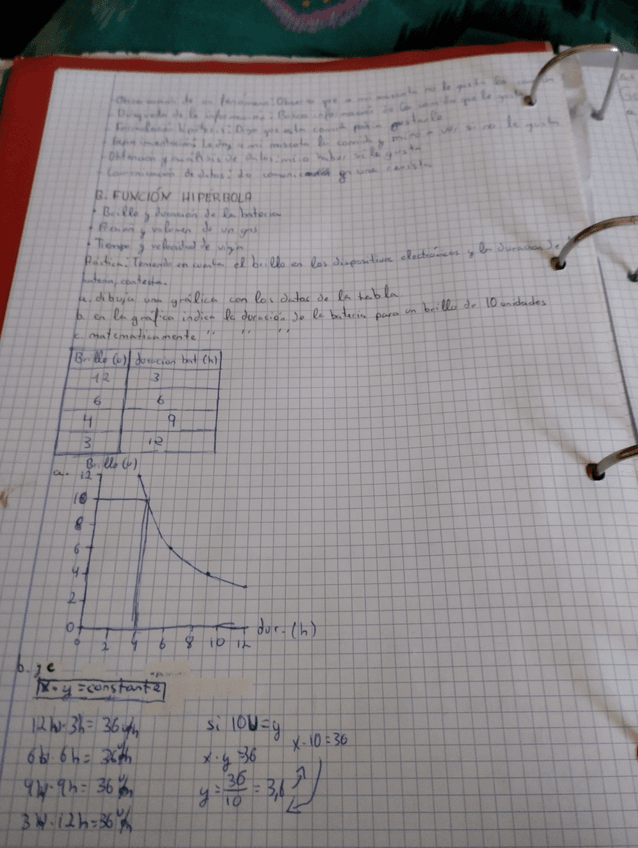 Observación de un fenómeno: Observo que a mi mascota no le gusta la
Búsqueda de la información: Busco información de la comida que le gusta
Formulación hipótesis: Digo que esta comida podría gustarle
Experimentación: Le doy a mi mascota la comida y miro a ver si no le gusta
Obtención y análisis de datos: miro a ver si le gusta
Comunicación de datos: lo comunico en una revista
B. FUNCIÓN HIPÉRBOLA
· Brillo y duración de la batería
· Presión y volumen de un gas
· Tiempo y velocidad de viaje
Práctica: Teniendo en cuenta el brillo en los dispositivos electrónicos y la duración de
batería, contesta.
a. dibuja una gráfica con los datos de la tabla
b. en la gráfica indica la duración de la batería para un brillo de 10 unidades
c. matemáticamente " " "
Brillo (u) duracion bat (h)
12 3
6 6
4 9
3 12
a. Brillo (u)
12
10
8
6
4
2
0
0 2 4 6 8 10 12 dur. (h)
b. y c
x · y = constante
12u·3h= 36 u/h si 10u=y
6u·6h= 36 u/h x·y=36 x·10=36
4u·9h= 36 u/h y= 36/10 = 3,6
3u·12h=36 u/h